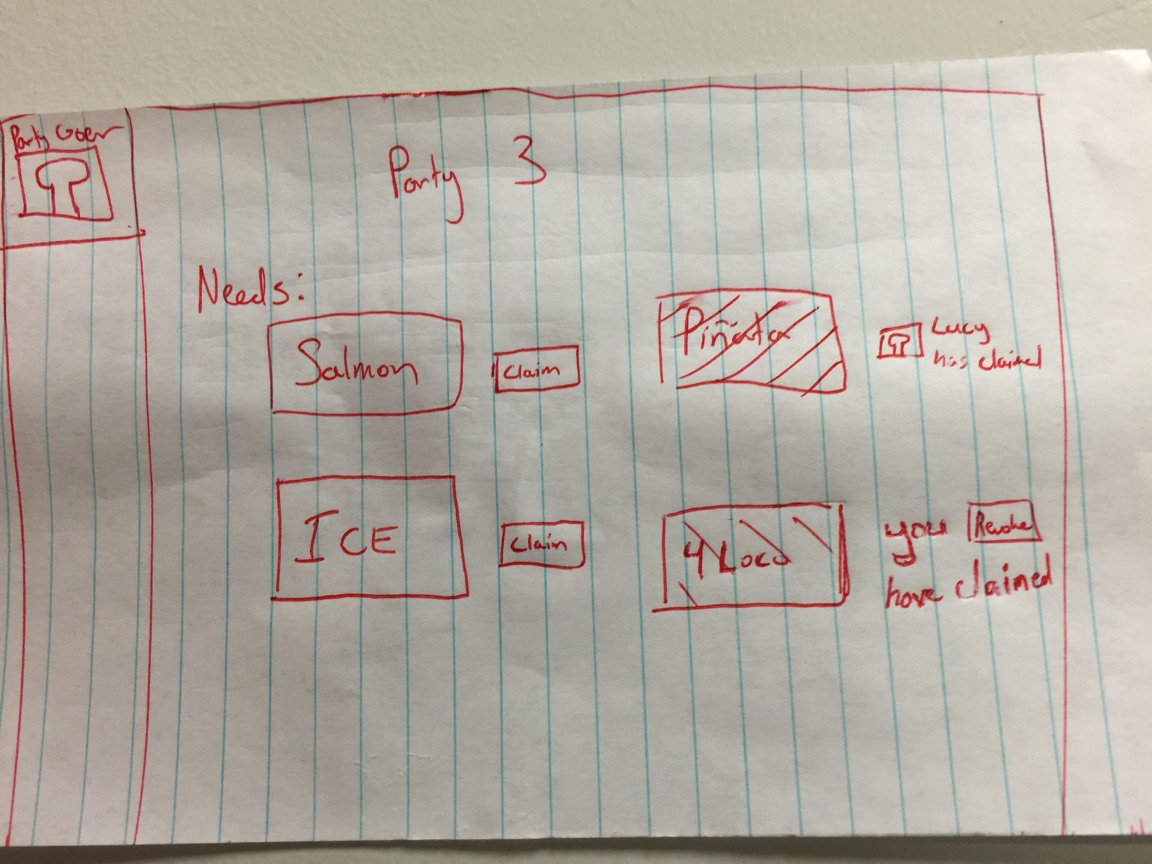 Party Goer
Party 3
Needs:
Salmon
Claim
Piñata
Lucy
has claimed
ICE
Claim
4 Loco
you
Revoke
have claimed